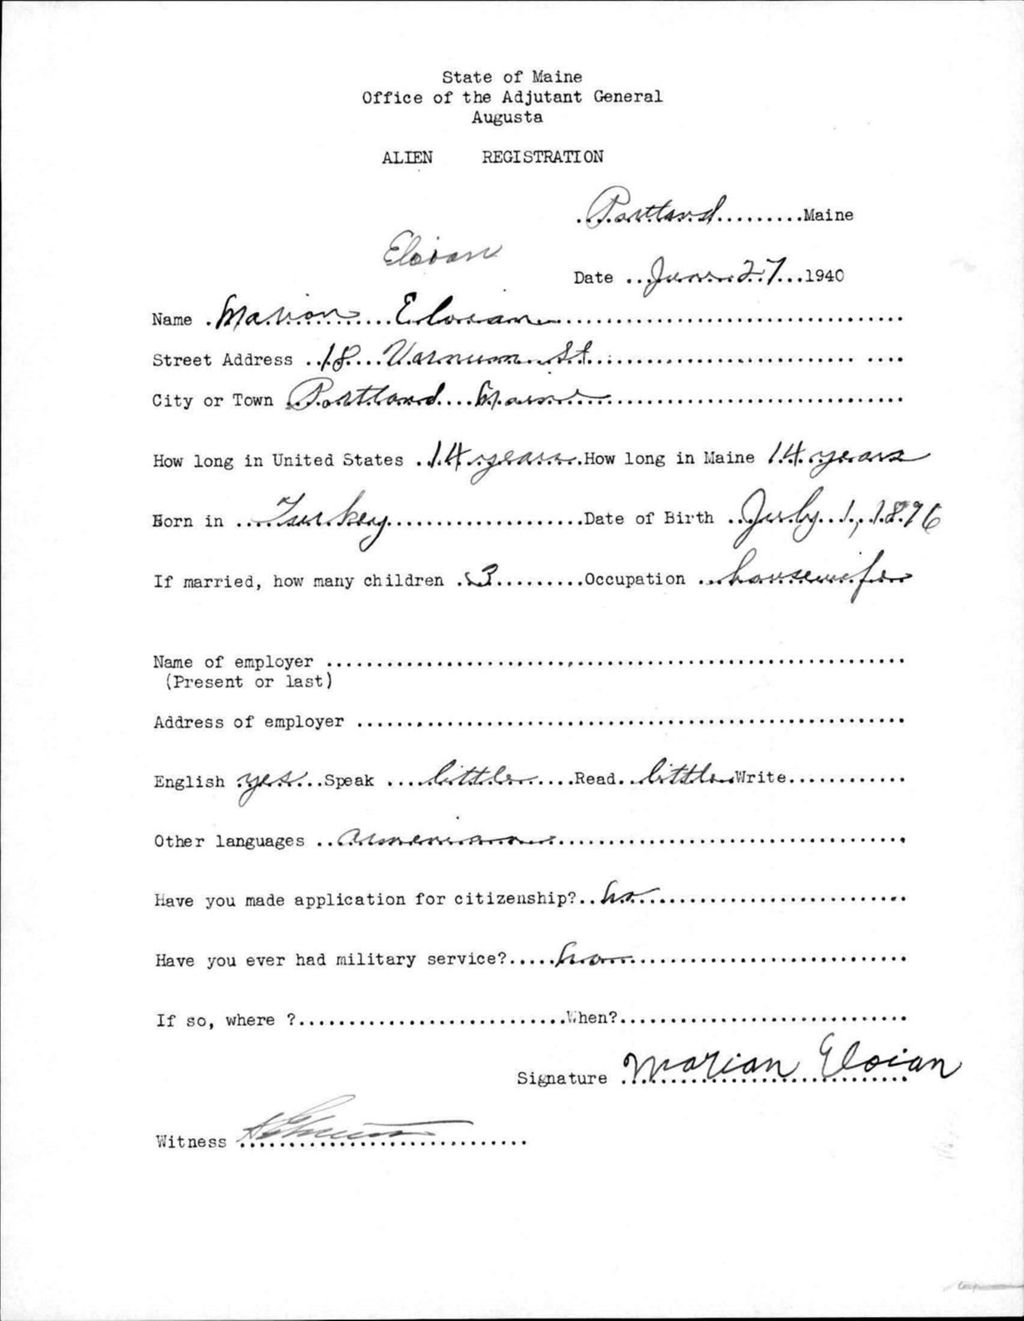 State of Maine
Office of the Adjutant General
Augusta
ALIEN REGISTRATION
Portland.........Maine
Eloian
Date ..June 27...1940
Name .Marion Eloian
Street Address ..18 Varnum St.
City or Town Portland Maine
How long in United States .14 years.How long in Maine 14 years
Born in ...Turkey....................Date of Birth ..July 1, 1896
If married, how many children .3.........Occupation ..housewife
Name of employer
(Present or last)
Address of employer
English yes...Speak ....little....Read..little.Write............
Other languages ..Armenian
Have you made application for citizenship?..no
Have you ever had military service?.....non
If so, where ?...........................When?
Signature Marian Eloian
Witness